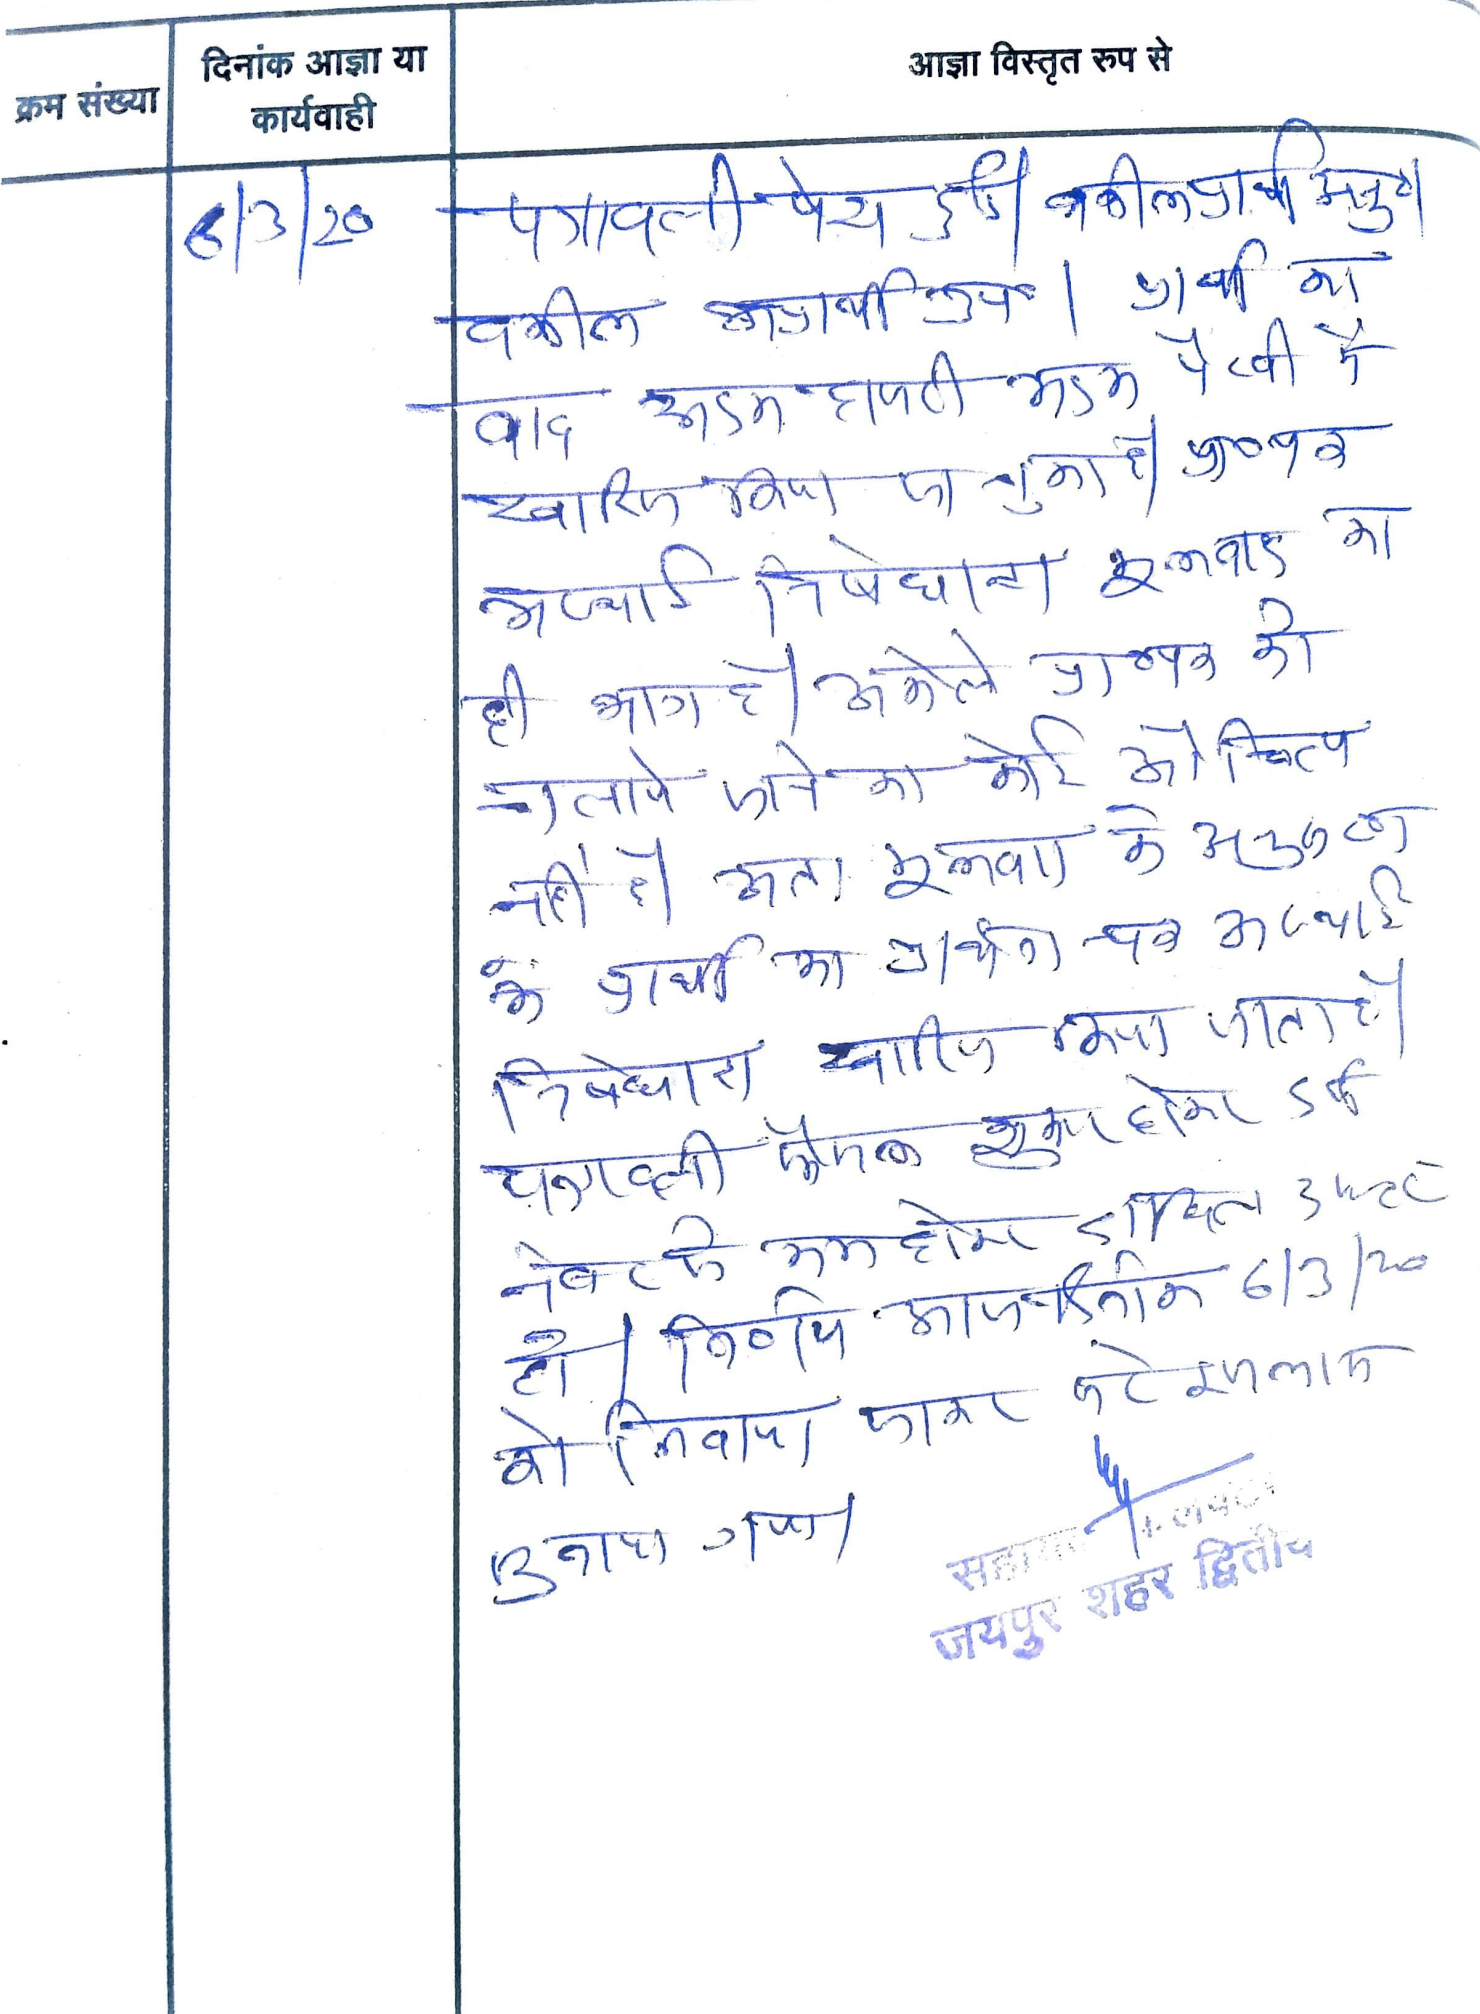 क्रम संख्या
दिनांक आज्ञा या
कार्यवाही
आज्ञा विस्तृत रुप से
6/3/20
पत्रावली पेश हुई। वकील प्रार्थी अनुप।
वकील अप्रार्थी उप०। प्रार्थी का
वाद अदम हाजरी अदम पैरवी में
खारिज किया जा चुका है। प्रा०पत्र
अस्थाई निषेधाज्ञा मूलवाद का
ही भाग है। अकेले प्रा०पत्र को
चलाये जाने का कोई औचित्य
नहीं है। अतः मूलवाद के अनुक्रम
के प्रार्थी का प्रार्थना पत्र अस्थाई
निषेधाज्ञा खारिज किया जाता है।
पत्रावली फैसल शुमार होकर दर्ज
नम्बर से कम होकर दाखिल दफ्तर
हो। निर्णय आज दिनांक 6/3/20
को लिखाया जाकर सरे इजलास
सुनाया गया।
सहायक कलक्टर
जयपुर शहर द्वितीय